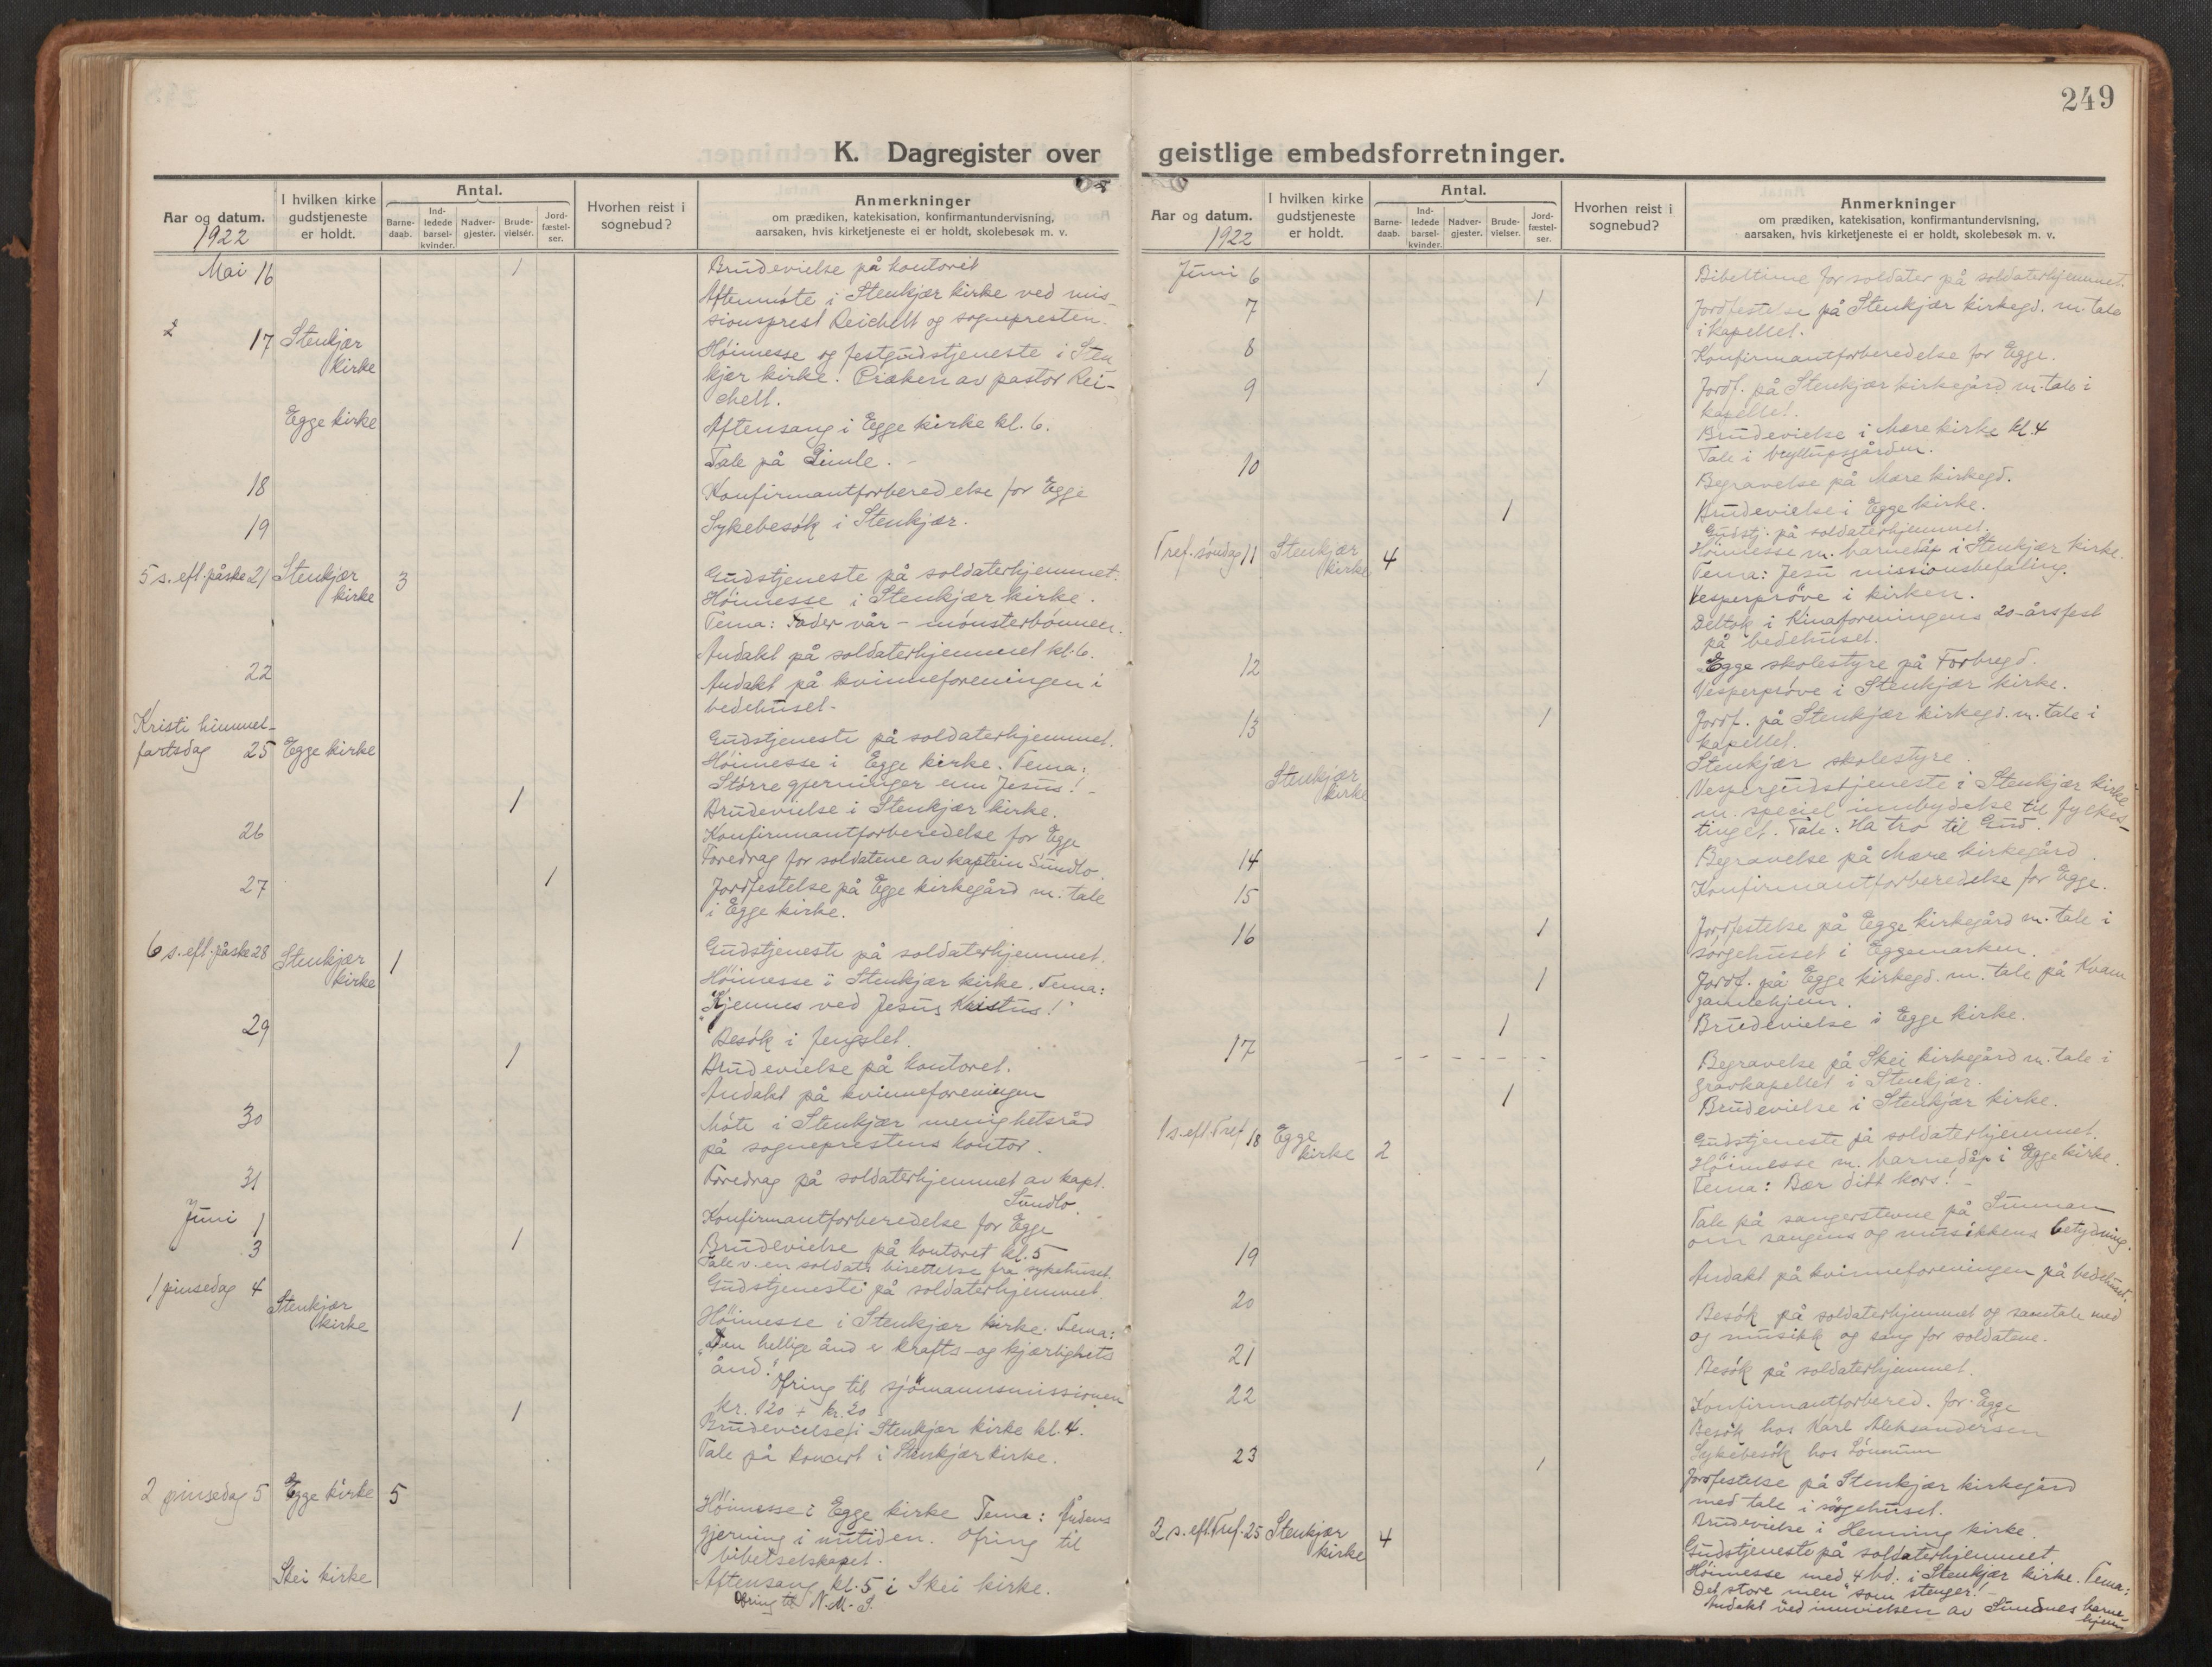 249
K. Dagregister over geistlige embedsforretninger.
Aar og datum.
1922
I hvilken kirke gudstjeneste er holdt.
Antal.
Barne-daab.
Ind-ledede barsel-kvinder.
Nadver-gjester.
Brude-vielser.
Jord-fæstel-ser.
Hvorhen reist i sognebud?
Anmerkninger
om prædiken, katekisation, konfirmantundervisning,
aarsaken, hvis kirketjeneste ei er holdt, skolebesøk m. v.
Mai 16 1 Brudevielse på kontoret
Aftenmøte i Stenkjær kirke ved mis-
sionsprest Reichelt og sognepresten.
17 Stenkjær kirke Høimesse og festgudstjeneste i Sten
kjær kirke. Præken av pastor Rei-
chelt.
Egge kirke Aftensang i Egge kirke kl. 6.
Tale på Gimle.
18 Konfirmantforberedelse for Egge
19 Sykebesøk i Stenkjær.
5 s. eft. påske 21 Stenkjær kirke 3 Gudstjeneste på soldaterhjemmet.
Høimesse i Stenkjær kirke.
Tema: Fader vår - mønsterbønnen.
Andakt på soldaterhjemmet kl. 6.
22 Andakt på kvinneforeningen i
bedehuset.
Kristi himmel-
fartsdag 25 Egge kirke Gudstjeneste på soldaterhjemmet.
Høimesse i Egge kirke. Tema:
Større gjerninger enn Jesus!
1 Brudevielse i Stenkjær kirke.
26 Konfirmantforberedelse for Egge
Foredrag for soldatene av kaptein Sundlo.
27 1 Jordfestelse på Egge kirkegård m. tale
i Egge kirke.
6 s. eft. påske 28 Stenkjær kirke 1 Gudstjeneste på soldaterhjemmet.
Høimesse i Stenkjær kirke. Tema:
"Kjennes ved Jesus Kristus!"
29 Besøk i fengslet.
1 Brudevielse på kontoret.
Andakt på kvinneforeningen
30 Møte i Stenkjær menighetsråd
på sogneprestens kontor.
31 Foredrag på soldaterhjemmet av kapt.
Sundlo.
Juni 1 Konfirmantforberedelse for Egge
3 1 Brudevielse på kontoret kl. 5
Tale v. en soldats bisettelse fra sykehuset.
1 pinsedag 4 Gudstjeneste på soldaterhjemmet.
Stenkjær kirke Høimesse i Stenkjær kirke. Tema:
"Den hellige ånd er krafts- og kjærlighets
ånd." Ofring til sjømannsmissionen
kr. 120 + kr. 20
1 Brudevielse i Stenkjær kirke kl. 4.
Tale på koncert i Stenkjær kirke.
2 pinsedag 5 Egge kirke 5 Høimesse i Egge kirke Tema: Åndens
gjerning i nutiden. Ofring til
bibelselskapet.
Skei kirke Aftensang kl. 5 i Skei kirke.
Ofring til N.M.S.
Aar og datum.
1922
I hvilken kirke gudstjeneste er holdt.
Antal.
Barne-daab.
Ind-ledede barsel-kvinder.
Nadver-gjester.
Brude-vielser.
Jord-fæstel-ser.
Hvorhen reist i sognebud?
Anmerkninger
om prædiken, katekisation, konfirmantundervisning,
aarsaken, hvis kirketjeneste ei er holdt, skolebesøk m. v.
Juni 6 Bibeltime for soldater på soldaterhjemmet.
7 1 Jordfestelse på Stenkjær kirkegd. m. tale
i kapellet.
8 Konfirmantforberedelse for Egge.
9 1 Jordf. på Stenkjær kirkegård m. tale i
kapellet.
Brudevielse i Mære kirke kl. 4
Tale i bryllupsgården.
10 Begravelse på Mære kirkegd.
1 Brudevielse i Egge kirke.
Gudstj. på soldaterhjemmet.
Tref. søndag 11 Stenkjær kirke 4 Høimesse m. barnedåp i Stenkjær kirke.
Tema: Jesu missionsbefaling.
Vesperprøve i kirken.
Deltok i Kinaforeningens 20-årsfest
på bedehuset.
12 Egge skolestyre på Forbregd.
Vesperprøve i Stenkjær kirke.
13 1 Jordf. på Stenkjær kirkegd. m. tale i
kapellet.
Stenkjær skolestyre.
Stenkjær kirke Vespergudstjeneste i Stenkjær kirke
m. speciel innbydelse til fylkes-
tinget. Tale: Ha tro til Gud.
14 Begravelse på Mære kirkegård.
15 Konfirmantforberedelse for Egge.
16 1 Jordfestelse på Egge kirkegård m. tale i
sørgehuset i Eggemarken.
1 Jordf. på Egge kirkegd. m. tale på Kvam
gamlehjem.
1 Brudevielse i Egge kirke.
17 - - - - - - - Begravelse på Skei kirkegård m. tale i
gravkapellet i Stenkjær.
1 Brudevielse i Stenkjær kirke.
1 s. eft. Tref 18 Egge kirke 2 Gudstjeneste på soldaterhjemmet.
Høimesse m. barnedåp i Egge kirke.
Tema: Bær ditt kors!
Tale på sangerstevne på Sunnan
om sangens og musikkens betydning.
19 Andakt på kvinneforeningen på bedehuset.
20 Besøk på soldaterhjemmet og samtale med
og musikk og sang for soldatene.
21 Besøk på soldaterhjemmet.
22 Konfirmantforbered. for Egge
Besøk hos Karl Aleksandersen
Sykebesøk hos
23 1 Jordfestelse på Stenkjær kirkegård
med tale i sørgehuset.
Brudevielse i Henning kirke.
2 s. eft. Tref. 25 Stenkjær kirke 4 Gudstjeneste på soldaterhjemmet.
Høimesse med 4 bd. i Stenkjær kirke. Tema:
Det store "men" som stenger!
Andakt ved innvielsen av Sundnes barne-
hjem